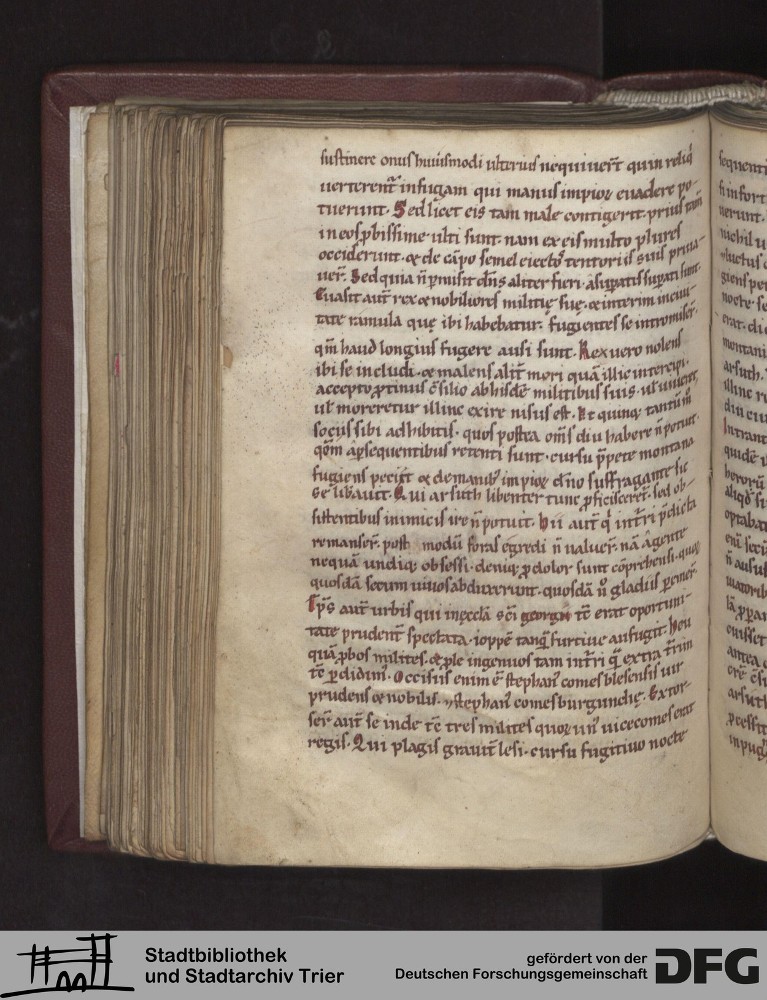 sustinere onus huiusmodi ulterius nequiuer̄t quin reliq̇
uerterent᷑ in fugam qui manus impioꝝ euadere po-
tuerunt. Sed licet eis tam male contigerit. prius tam̄
in eos ꝓbissime ulti sunt. nam ex eis multo plures
occiderunt. & de cāpo semel eiectos tentoriis suis priua-
uer̄. Sed quia n̄ ꝑmisit dn̄s aliter fieri. a suꝑatis suꝑati sunt.
Euasit aut̄ rex & nobiliores militię suę. & interim in ciui-
tate ramula quę ibi habebatur. fugientes se intromiser̄.
qm̄ haud longius fugere ausi sunt. Rex uero nolens
ibi se includi. & malens alit̄ mori quā illic intercipi.
accepto ꝓtinus c̄silio ab hisdē militibus suis. ut uiueret
ut moreretur illinc exire nisus est. Et quinq; tantūm̄
sociis sibi adhibitis. quos postea om̄s diu habere n̄ potuit.
qm̄ a ꝑsequentibus retenti sunt. cursu p̄pete montana
fugiens peciit & de manib; impioꝝ dn̄o suffragante sic
se lib̄auit. Qui arsuth libenter tunc ꝓficisceret᷑. sed ob-
sistentibus inimicis ire n̄ potuit. Hii aut̄ q̇ intr̄i p̄dicta
remanser̄. post modū foras egredi n̄ ualuer̄. nā a gente
nequā undiq; obsessi. deniq; ꝓ dolor sunt cōprehensi. quoꝝ
quosdā secum uiuos abduxerunt. quosdā u̇ gladiis ꝑemer̄.
Ep̄s aut̄ urbis qui in ęcclā sc̄i georgii tc̄ erat oportuni-
tate prudent̄ spectata. ioppē tanq̄ furtiue aufugit. Heu
quā ꝓbos milites. & ꝓle ingenuos tam intr̄i q̄ extra t̄rim
tc̄ ꝑdidim᷒. Occisus enim ē stephan᷒ comes blesensis uir
prudens & nobilis. & stephan᷒ comes burgundię. Extor-
ser̄ aut̄ se inde tc̄ tres milites quoꝝ un᷒ uicecomes erat
regis. Qui plagis grauit̄ lesi. cursu fugitiuo nocte
Stadtbibliothek
und Stadtarchiv Trier
gefördert von der
Deutschen Forschungsgemeinschaft
DFG